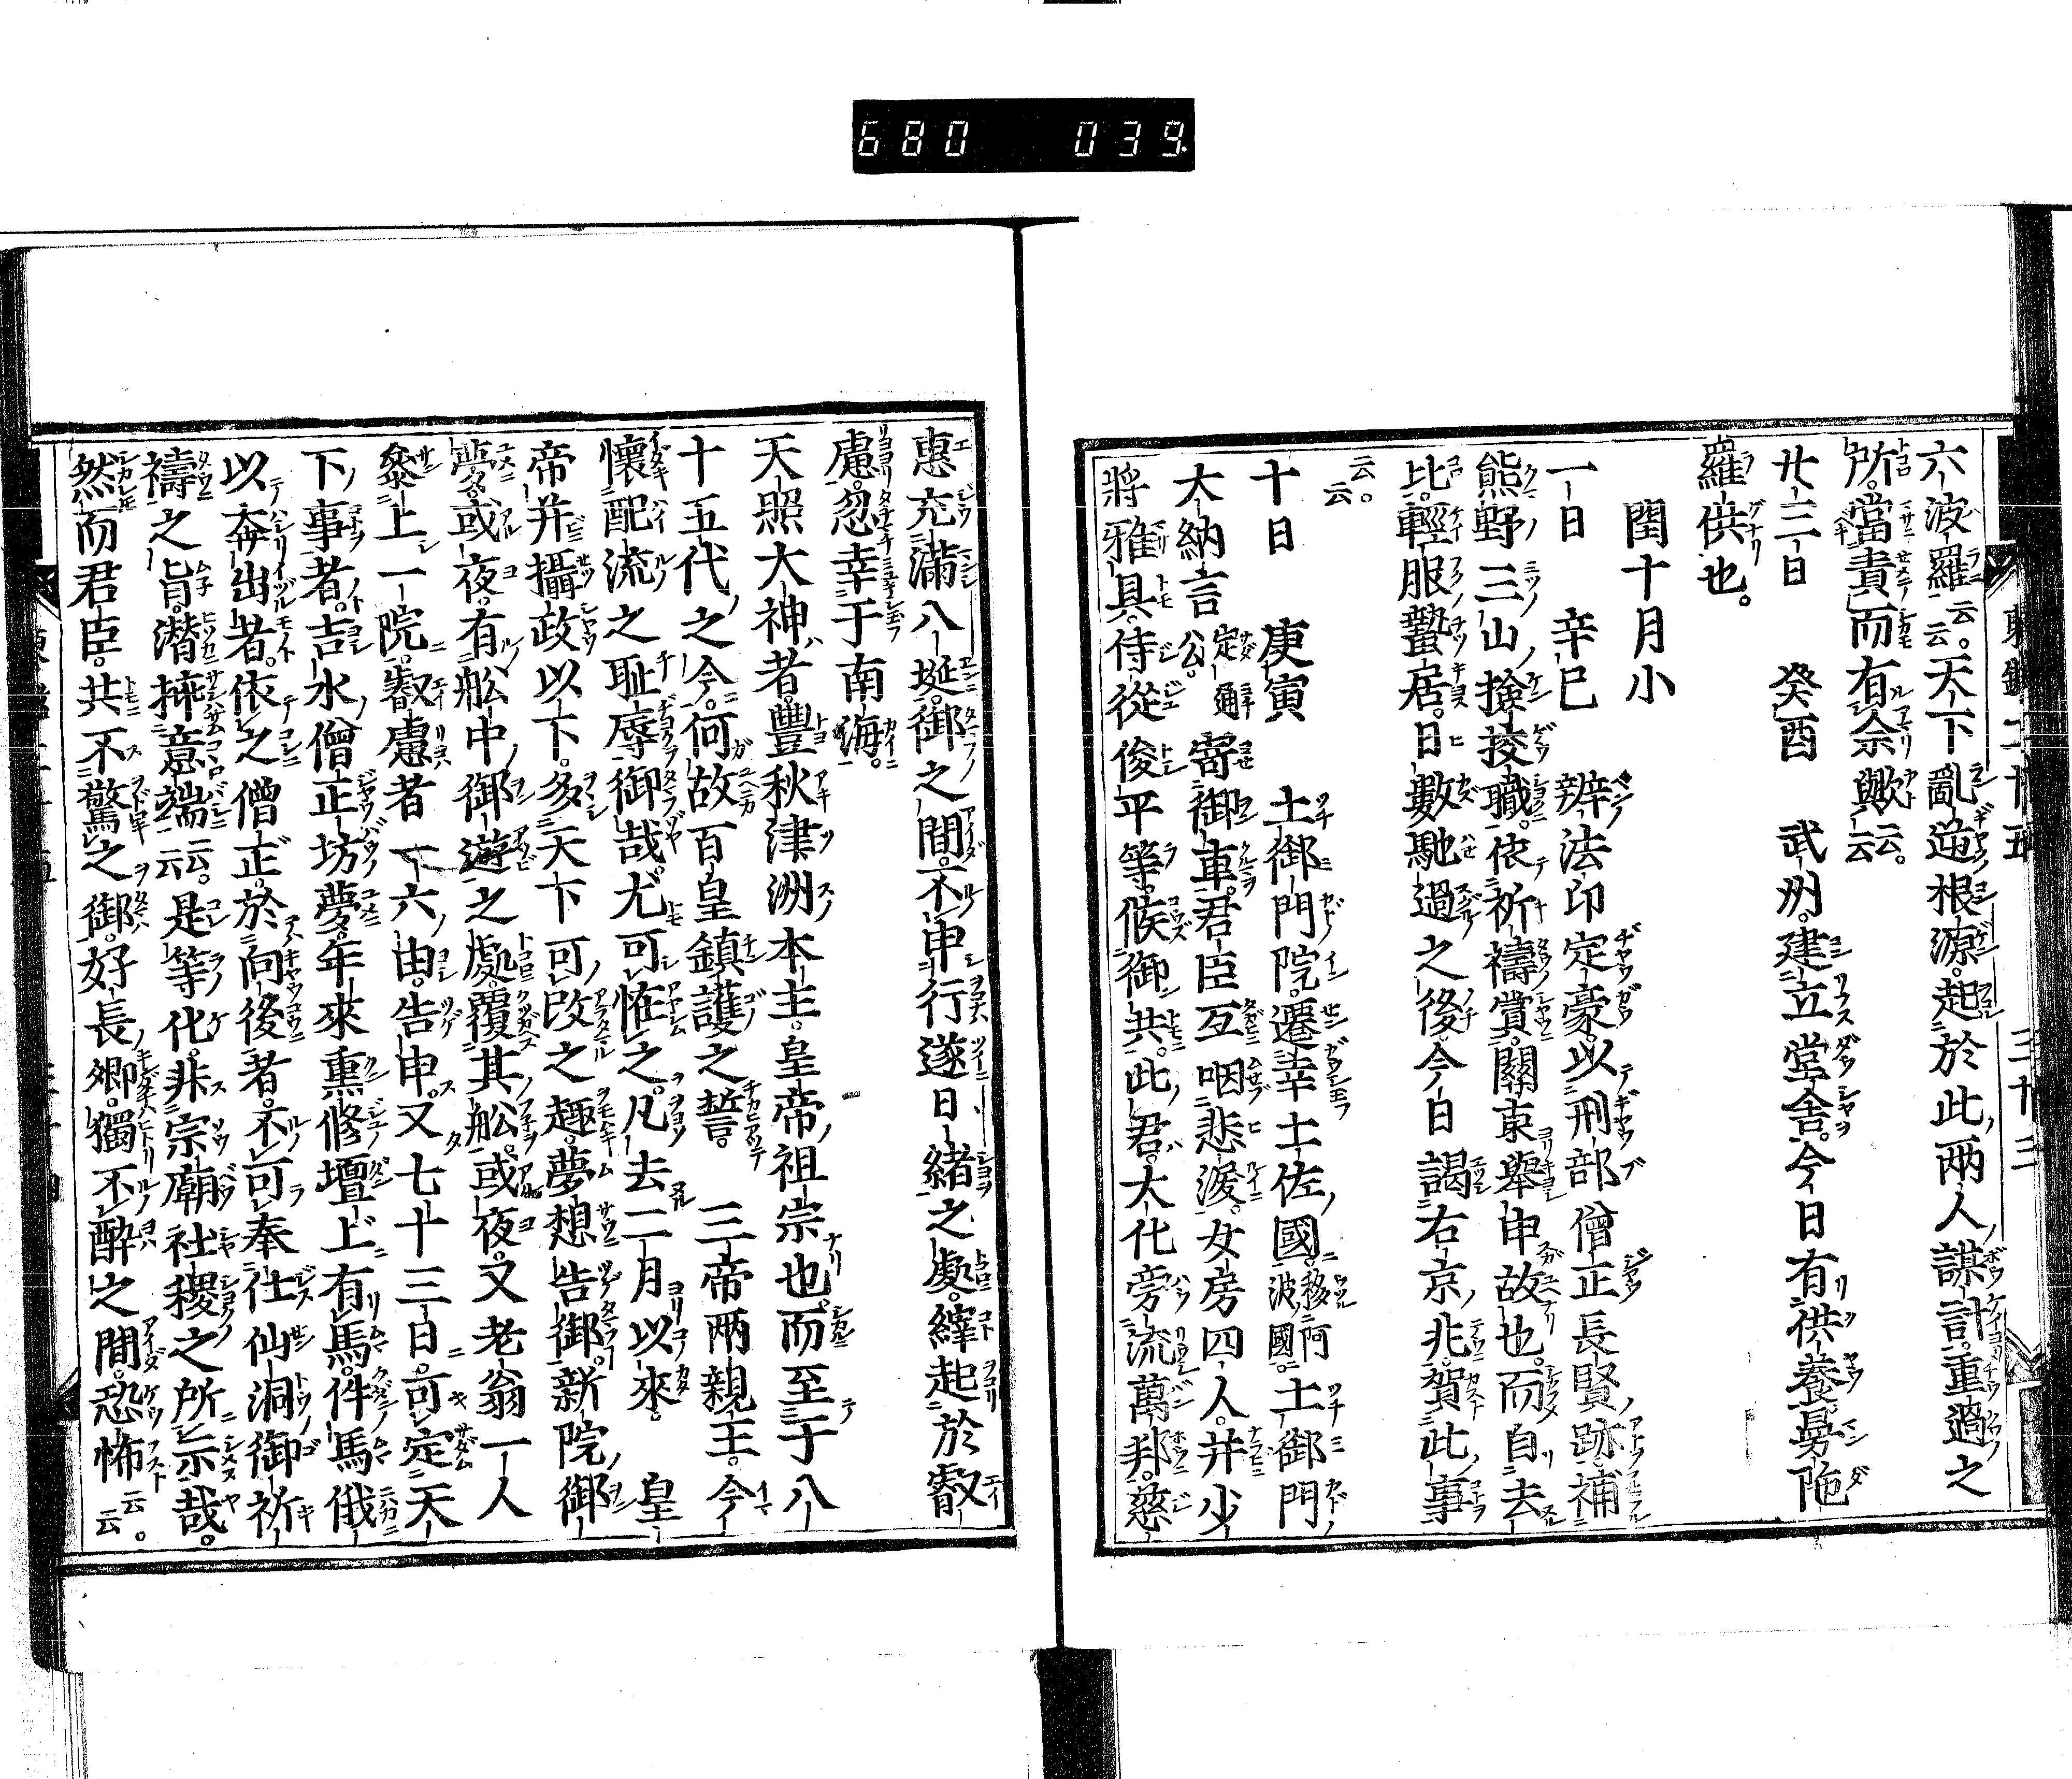 680 039
六波羅云云。天下亂逆根源。起於此兩人謀計。重過之
所。當責而有余歟云云。
廿三日 癸酉 武州。建立堂舍。今日有供養曼陁
羅供也。
閏十月小
一日 辛巳 辨法印定豪。以刑部僧正長賢跡。補
熊野三山撿挍職。依祈禱賞。關東舉申故也。而自去
比。輕服蟄居。日數馳過之後。今日謁右京兆。賀此事
云云。
十日 庚寅 土御門院。遷幸土佐國。移阿波國。土御門
大納言定通公。寄御車。君臣互咽悲淚。女房四人。并少
將雅具。侍從俊平等。候御共。此君。大化旁流萬邦。慈
惠充滿八埏。御之間。不申行遂日緒之處。縡起於叡
慮。忽幸于南海。
天照大神者。豐秋津洲本主。皇帝祖宗也。而至于八
十五代之今。何故百皇鎮護之誓。三帝兩親王。今
懷配流之耻辱御哉。尤可恠之。凡去二月以來。皇
帝并攝政以下。多天下可改之趣。夢想告御。新院御
夢。或夜。有舩中御遊之處。覆其舩。或夜。又老翁一人
參上一院。叡慮者一六由。告申。又七十三日。可定天
下事者。吉水僧正坊夢。年來熏修壇上有馬。件馬俄
以奔出者。依之僧正。於向後者。不可奉仕仙洞御祈
禱之旨。潛挿意端云云。是等化。非宗廟社稷之所示哉。
然而君臣。共不驚之御。好長卿。獨不醉之間。恐怖云云。